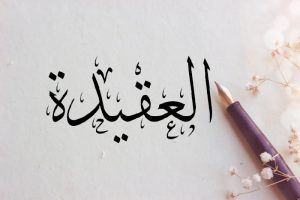 العقيدة